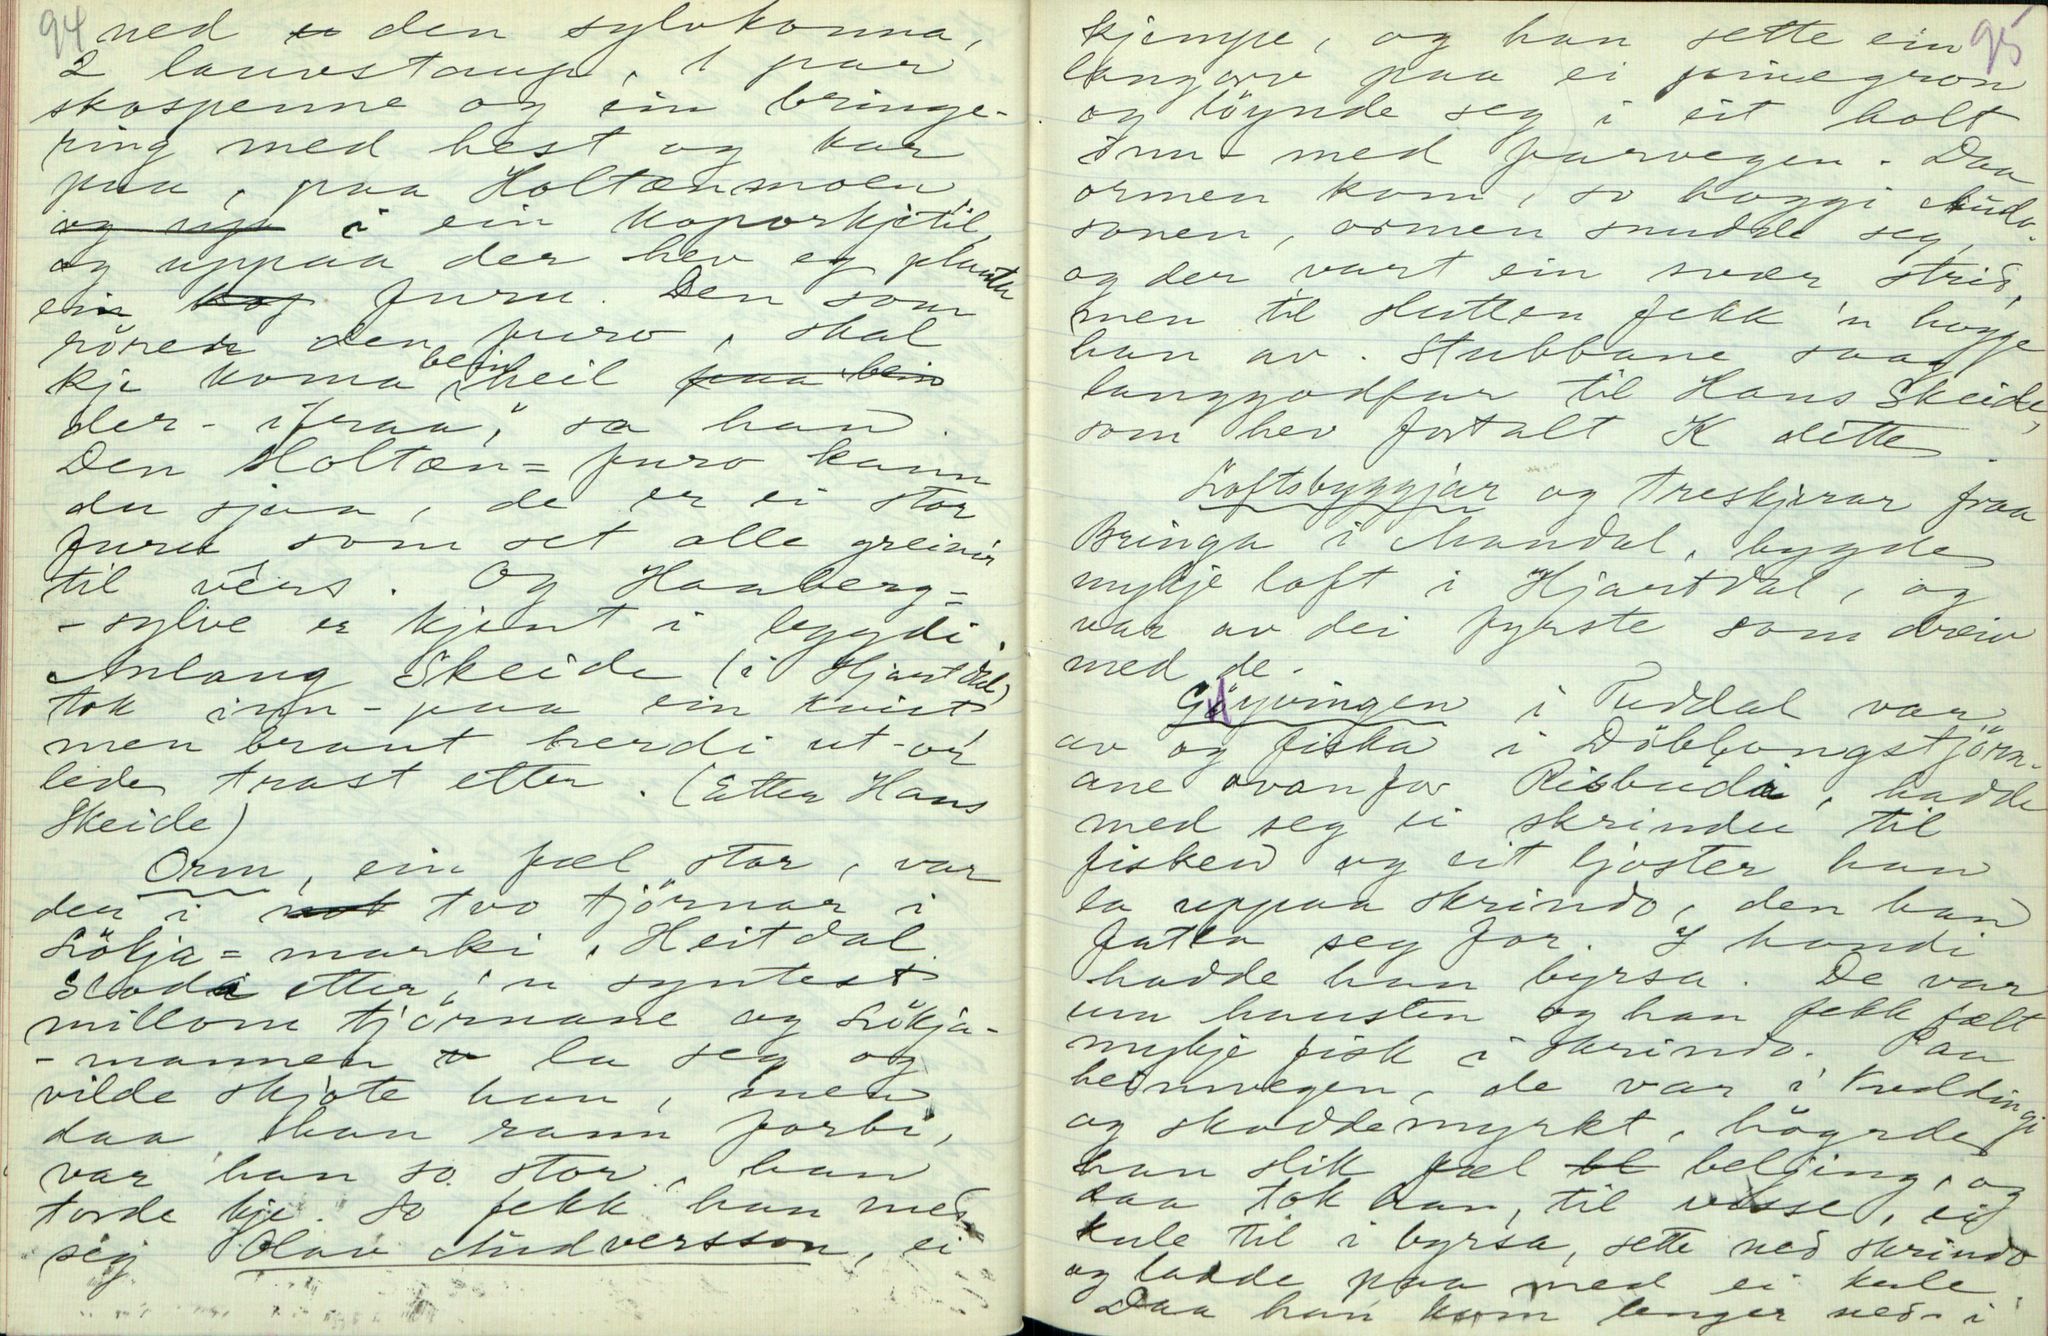 94
ned den sylvkonna,
2 lauvstaup, 1 par
skospenne og ein bringe-
ring med hest og kar
paa, paa Holtænmoen
og upp i ein koparkjetil,
og uppaa der hev eg planta
ein furu. Den som
rörer den furo, skal
kje koma beinheil paa bein
der-ifraa", sa han.
Den Holtæn-furo kann
du sjaa, de er ei stor
furu som set alle greinir
til vêrs. Og Haaberg-
-sylve er kjent i byggdi.
Aslaug Skeide (i Hjartdal)
tok inn-paa ein kvist
men brant herdi ut-or
lede trast etter. (Etter Hans
Skeide)
Orm, ein fæl stor, var
der i two tjörnar i
Lökja-marki, Heitdal.
Sloda etter 'n syntest
millom tjörnane og Lökja-
-mannen la seg og
vilde skjote han, men
daa han rann forbi,
var han so stor, han
torde kje. So fekk han med
seg Olav Audversson, ei
95
kjempe, og han sette ein
langorv paa ei
og löynde seg i eit holt
inn-med farvegen. Daa
ormen kom, so hoggi Auda-
sonen, ormen snudde seg,
og der vart ein svær strid,
men til slutten fekk 'n hogge
han av. Stubbane saag
langgodfar til Hans Skeide,
som hev fortalt K dette.
Loftsbyggjar og treskjerar fraa
Bringa i Mandal, bygde
mykje loft i Hjartdal, og
var av dei fyrste som dreiv
med de.
Göyvingen i Tuddal var
av og fiska i Döblongstjörn-
ane ovanfor Risbudi, hadde
med seg ei skrinde til
fisken og eit ljoster han
la uppaa skrindo, den han
fatla seg for. I hondi
hadde han byrsa. De var
um hausten og han fekk fælt
mykje fisk i skrindo. Paa
heimvegen, de var i kveldingi
og skoddemyrkt, högrde
han slik fæl beljing, og
daa tok han, til visse, ei
kule til i byrsa, sette ned skrindo
og ladde paa med ei kule.
Daa han kom lenger ned-i